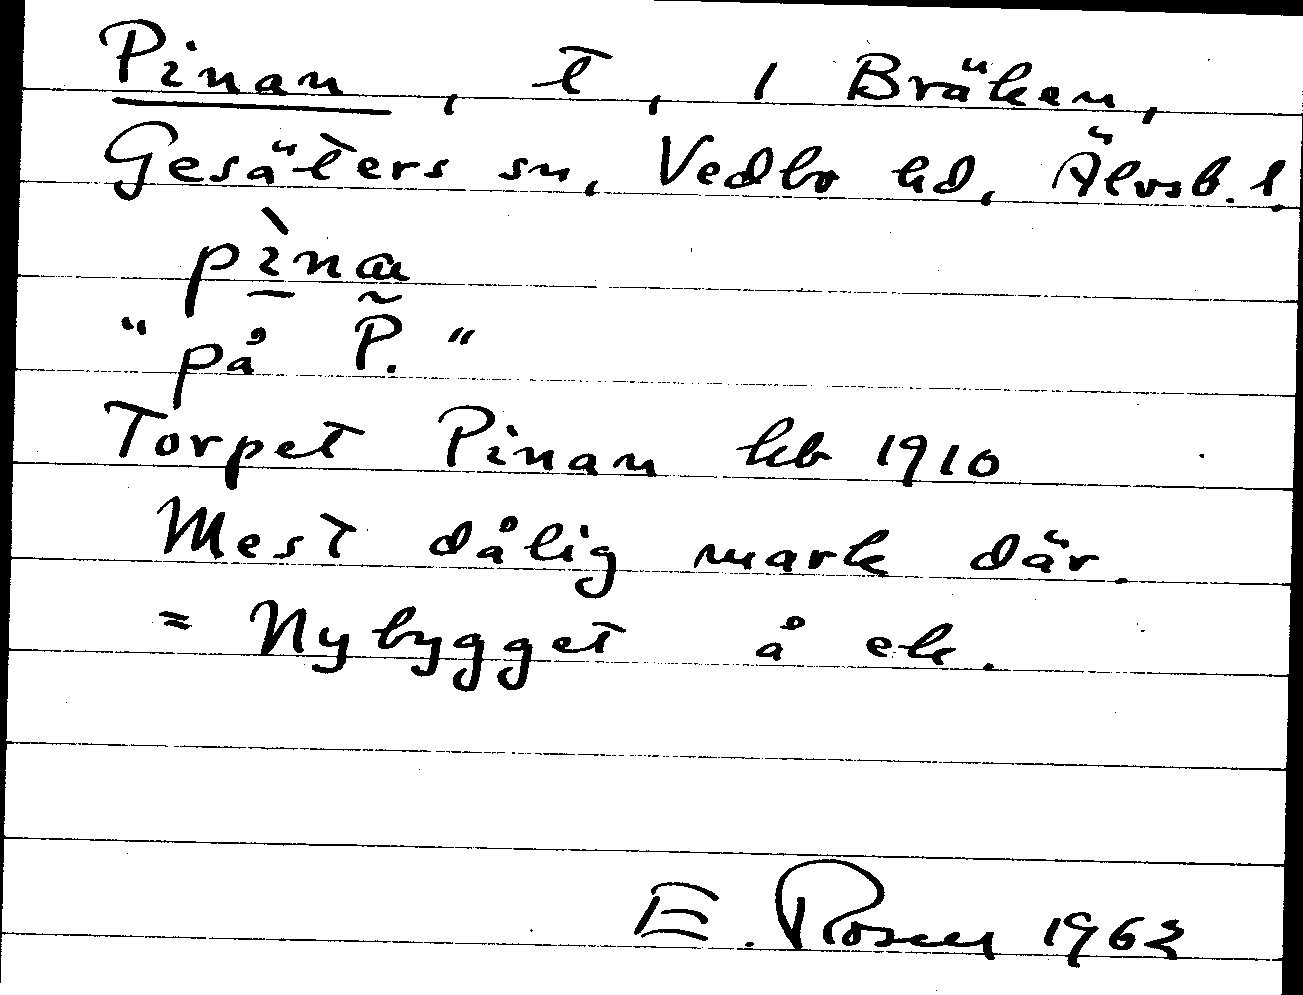 Pinan, t, 1 Bräken,
Gesäters sn, Vedbo hd, Älvsb. l.
pìna
"på P."
Torpet Pinan kb 1910
Mest dålig mark där.
= Nybygget å ek.
E. Rosen 1963